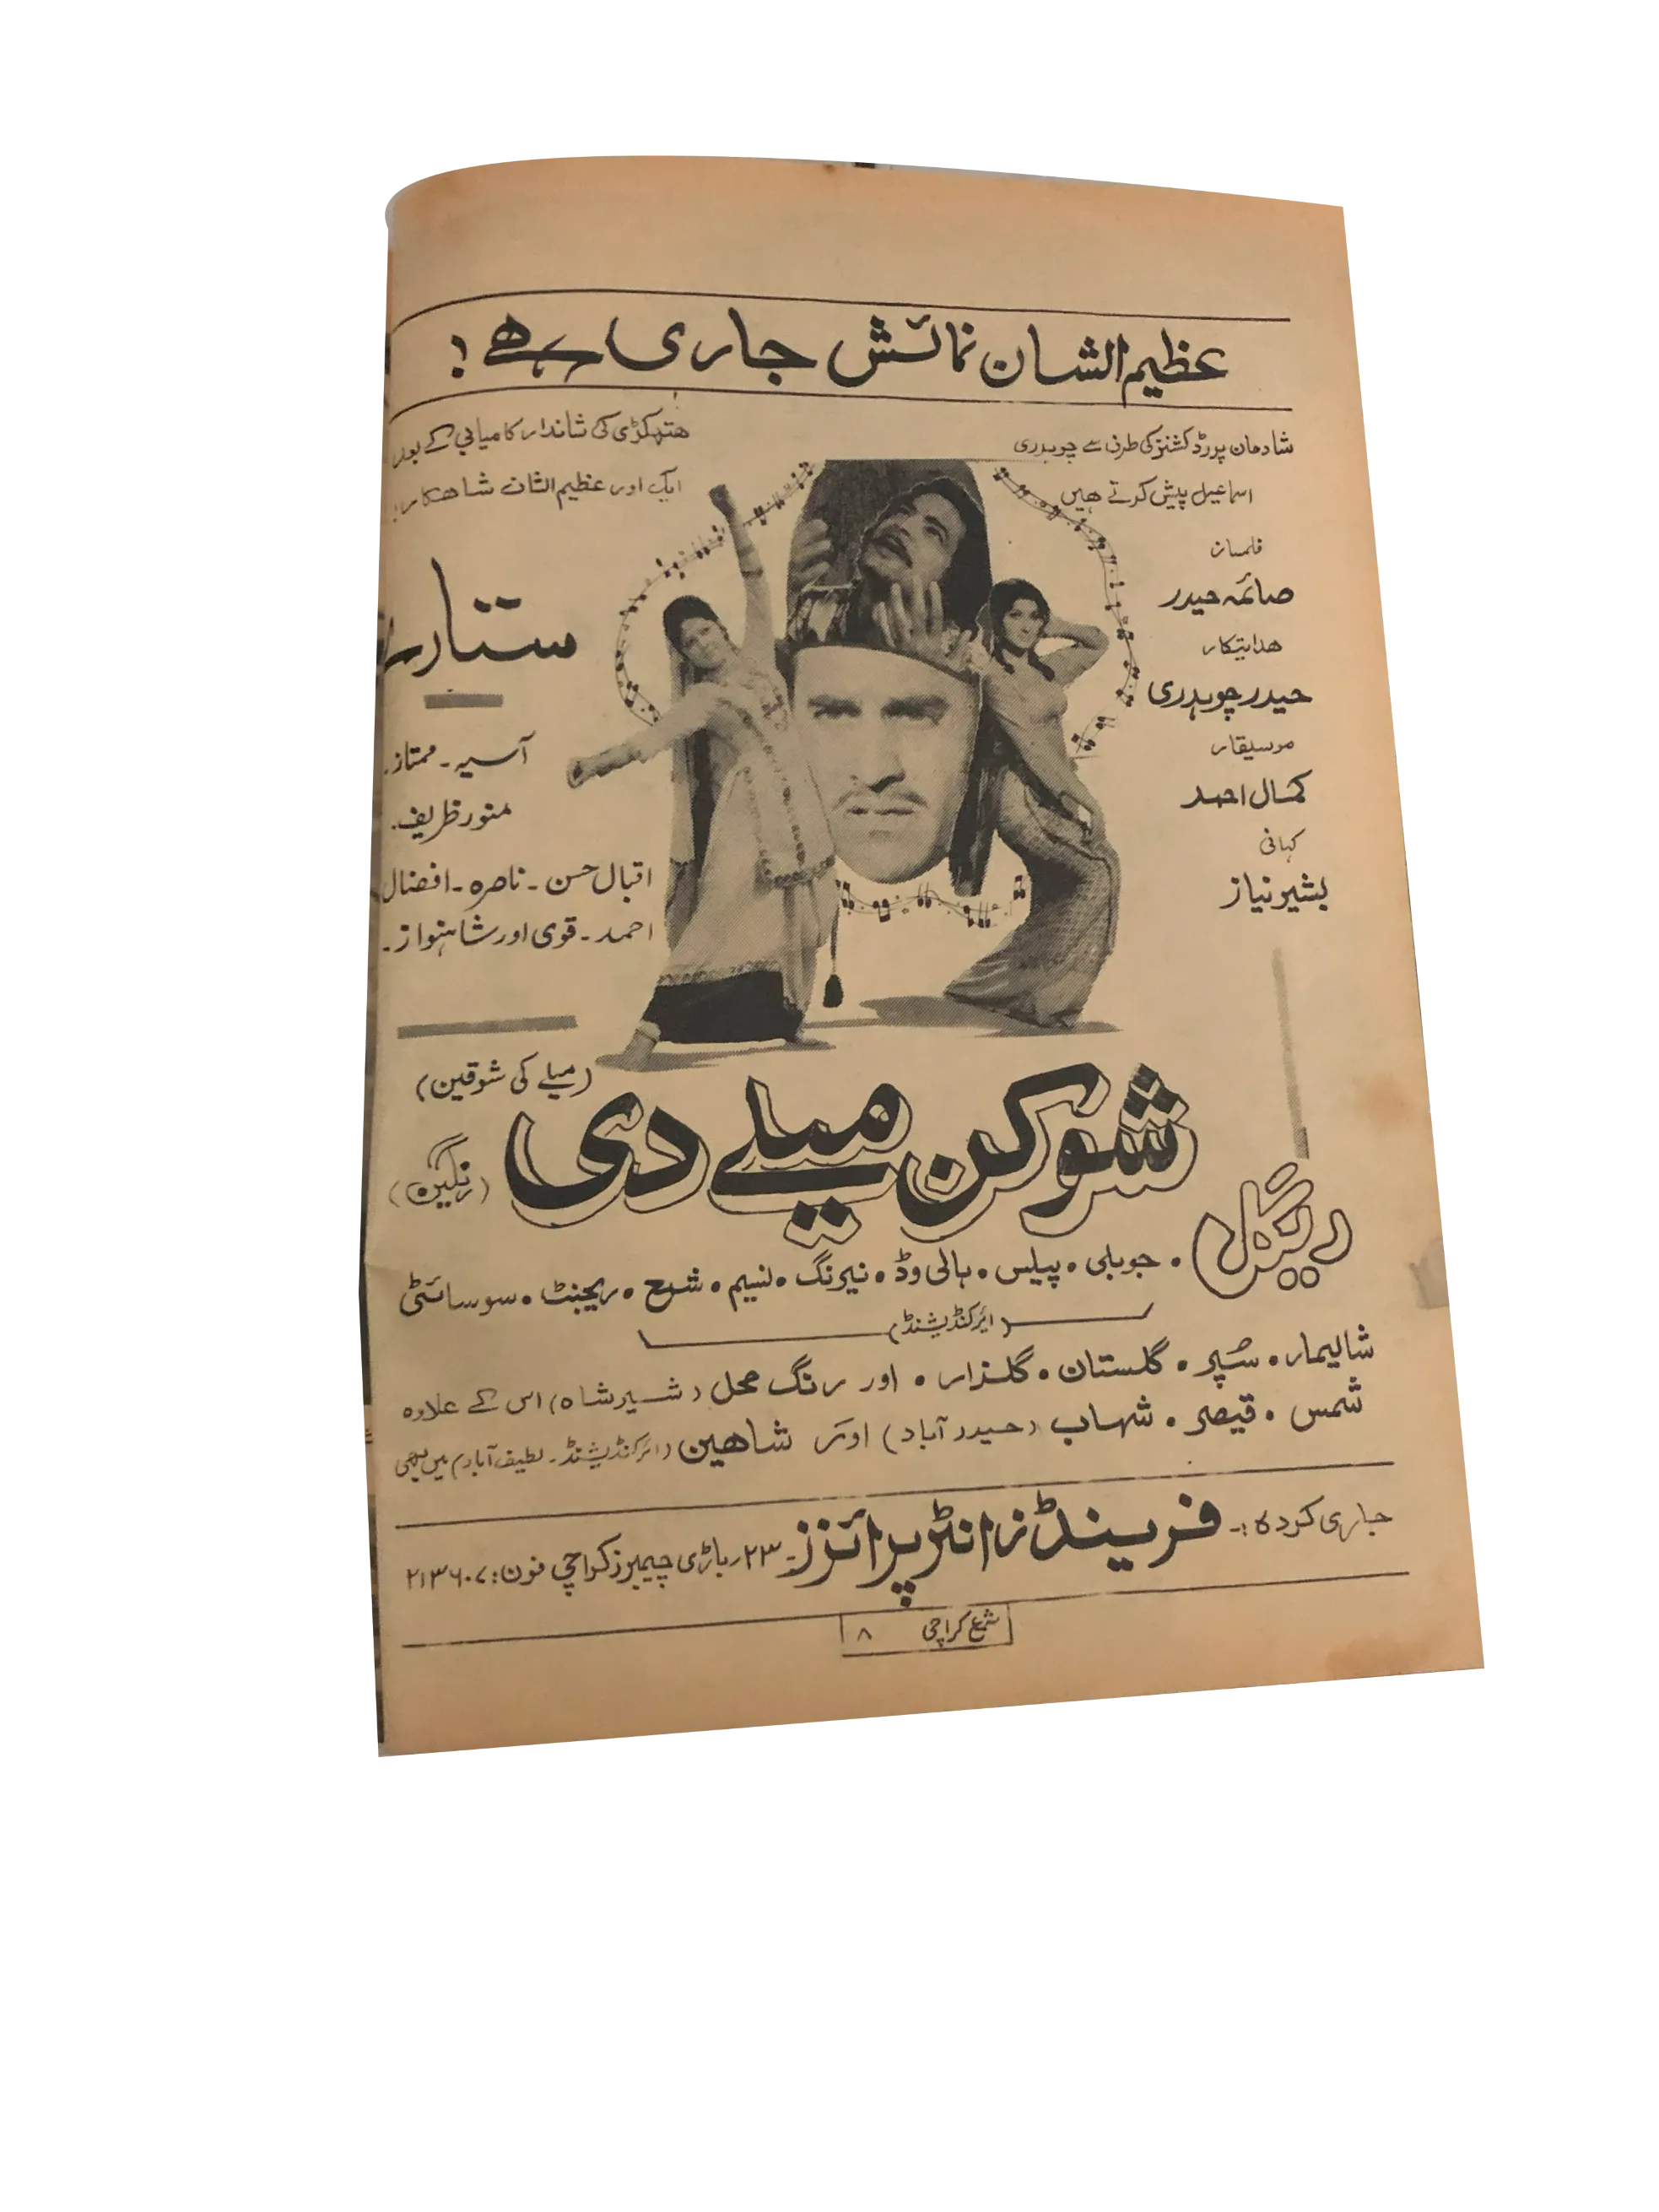 عظیم الشان نمائش جاری ہے!
شادمان پروڈکشنز کی طرف سے چوہدری
اسماعیل پیش کرتے ہیں
ہتھکڑی کی شاندار کامیابی کے بعد
ایک اور عظیم الشان شاھکار!
فلمساز
صائمہ حیدر
ھدایتکار
حیدر چوہدری
موسیقار
کمال احمد
کہانی
بشیر نیاز
ستارے
آسیہ ۔ ممتاز ۔
منور ظریف ۔
اقبال حسن ۔ ناصرہ ۔ افضال
احمد ۔ قوی اور شاہنواز ۔
(میلے کی شوقین)
شوکن میلے دی
(رنگین)
ریگل • جوبلی • پیلس • ہالی وڈ • نیرنگ • نسیم • شمع • ریجنٹ • سوسائٹی
(ائرکنڈیشنڈ)
شالیمار • سُپر • گلستان • گلزار • اور رنگ محل (شیر شاہ) اس کے علاوہ
شمس • قیصر • شہاب (حیدر آباد) اور شاھین (ائرکنڈیشنڈ ۔ لطیف آباد میں بھی
جاری کردہ :۔ فرینڈز انٹرپرائزز ۔ ۲۳ ر باڑی چیمبرز کراچی فون : ۲۱۳۶۰۷
شمع کراچی ۸